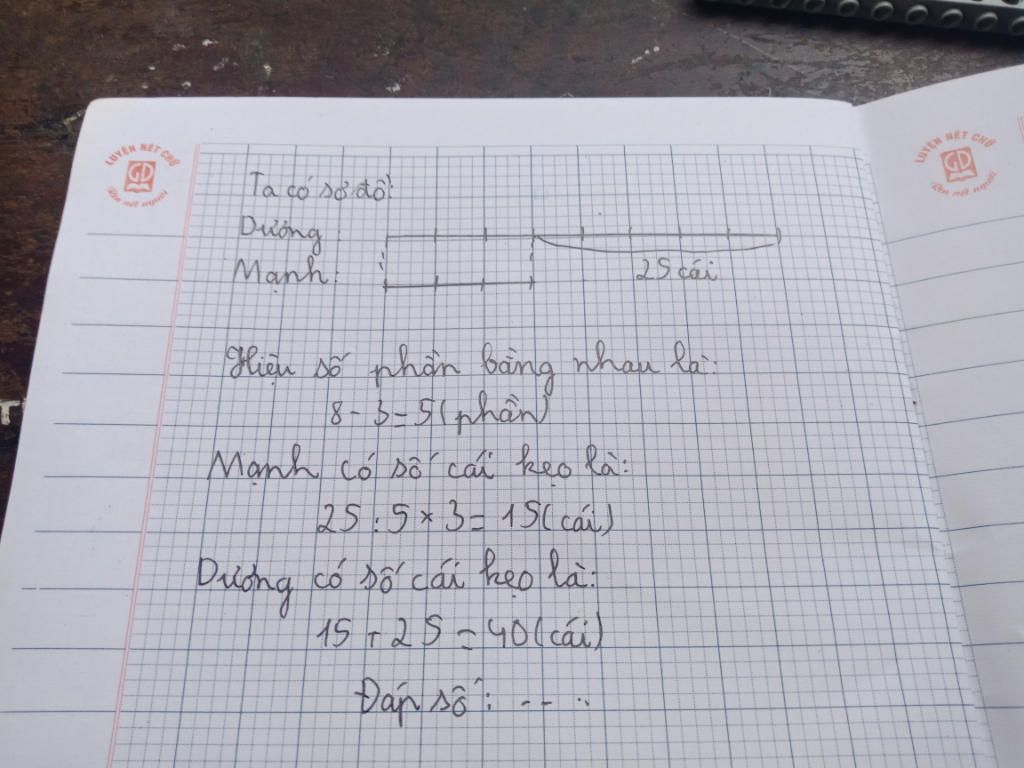 LUYỆN NÉT CHỮ
GD
Rèn nết người
LUYỆN NÉT CHỮ
GD
Rèn nết người
Ta có sơ đồ:
Dương
Mạnh:
25 cái
Hiệu số phần bằng nhau là:
8 - 3 = 5 (phần)
Mạnh có số cái kẹo là:
25 : 5 × 3 = 15 (cái)
Dương có số cái kẹo là:
15 + 25 = 40 (cái)
Đáp số: -- ..